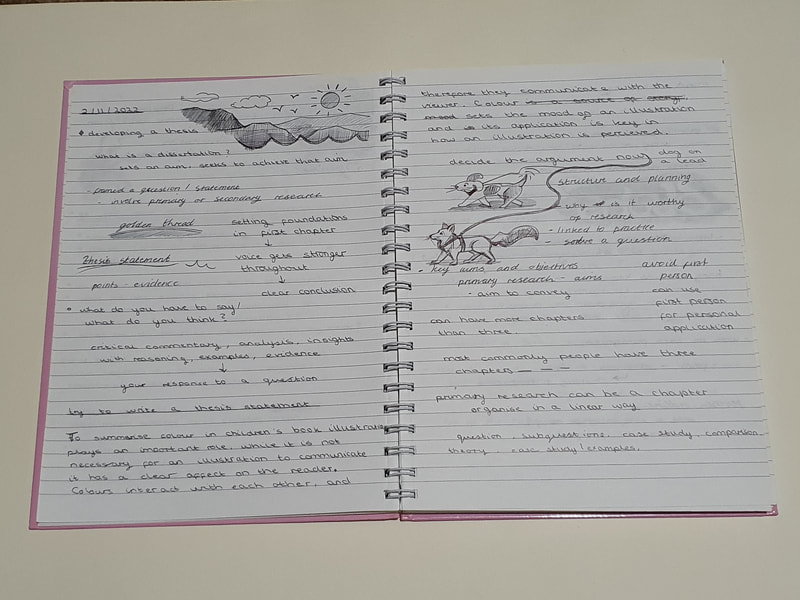 2/11/2022
• developing a thesis
what is a dissertation?
sets an aim, seeks to achieve that aim
- a question / statement
- involve primary or secondary research
golden thread
setting foundations
in first chapter
↓
Thesis statement
voice gets stronger
throughout
↓
points - evidence
clear conclusion
• what do you have to say/
what do you think?
critical commentary, analysis, insights
with reasoning, examples, evidence
↓
your response to a question
try to write a thesis statement
To summarise colour in children's book illustration
plays an important role, while it is not
necessary for an illustration to communicate
it has a clear affect on the reader.
Colours interact with each other, and
therefore they communicate with the
viewer. Colour is a source of story,
mood sets the mood of an illustration
and is its application is key in
how an illustration is percieved.
decide the argument now
dog on
a lead
structure and planning
- why is it worthy
of research
- linked to practice
- solve a question
- key aims and objectives
primary research - aims
- aim to convey
avoid first
person
can use
first person
for personal
application
can have more chapters
than three.
most commonly people have three
chapters — — —
primary research can be a chapter
organise in a linear way
question, subquestions, case study, comparison
theory, case study/examples.